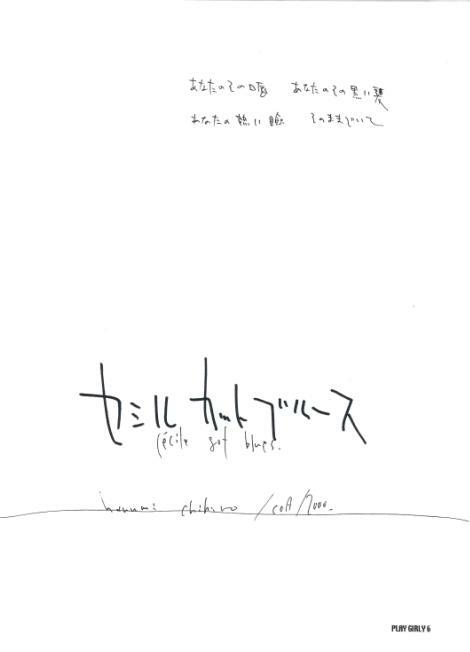 あなたのその唇 あなたのその黒い髪
あなたの熱い瞼 そのままでいて
セシル カットブルース
cécile got blues.
harumi chihiro / colt / 2000.
PLAY GIRLY 6